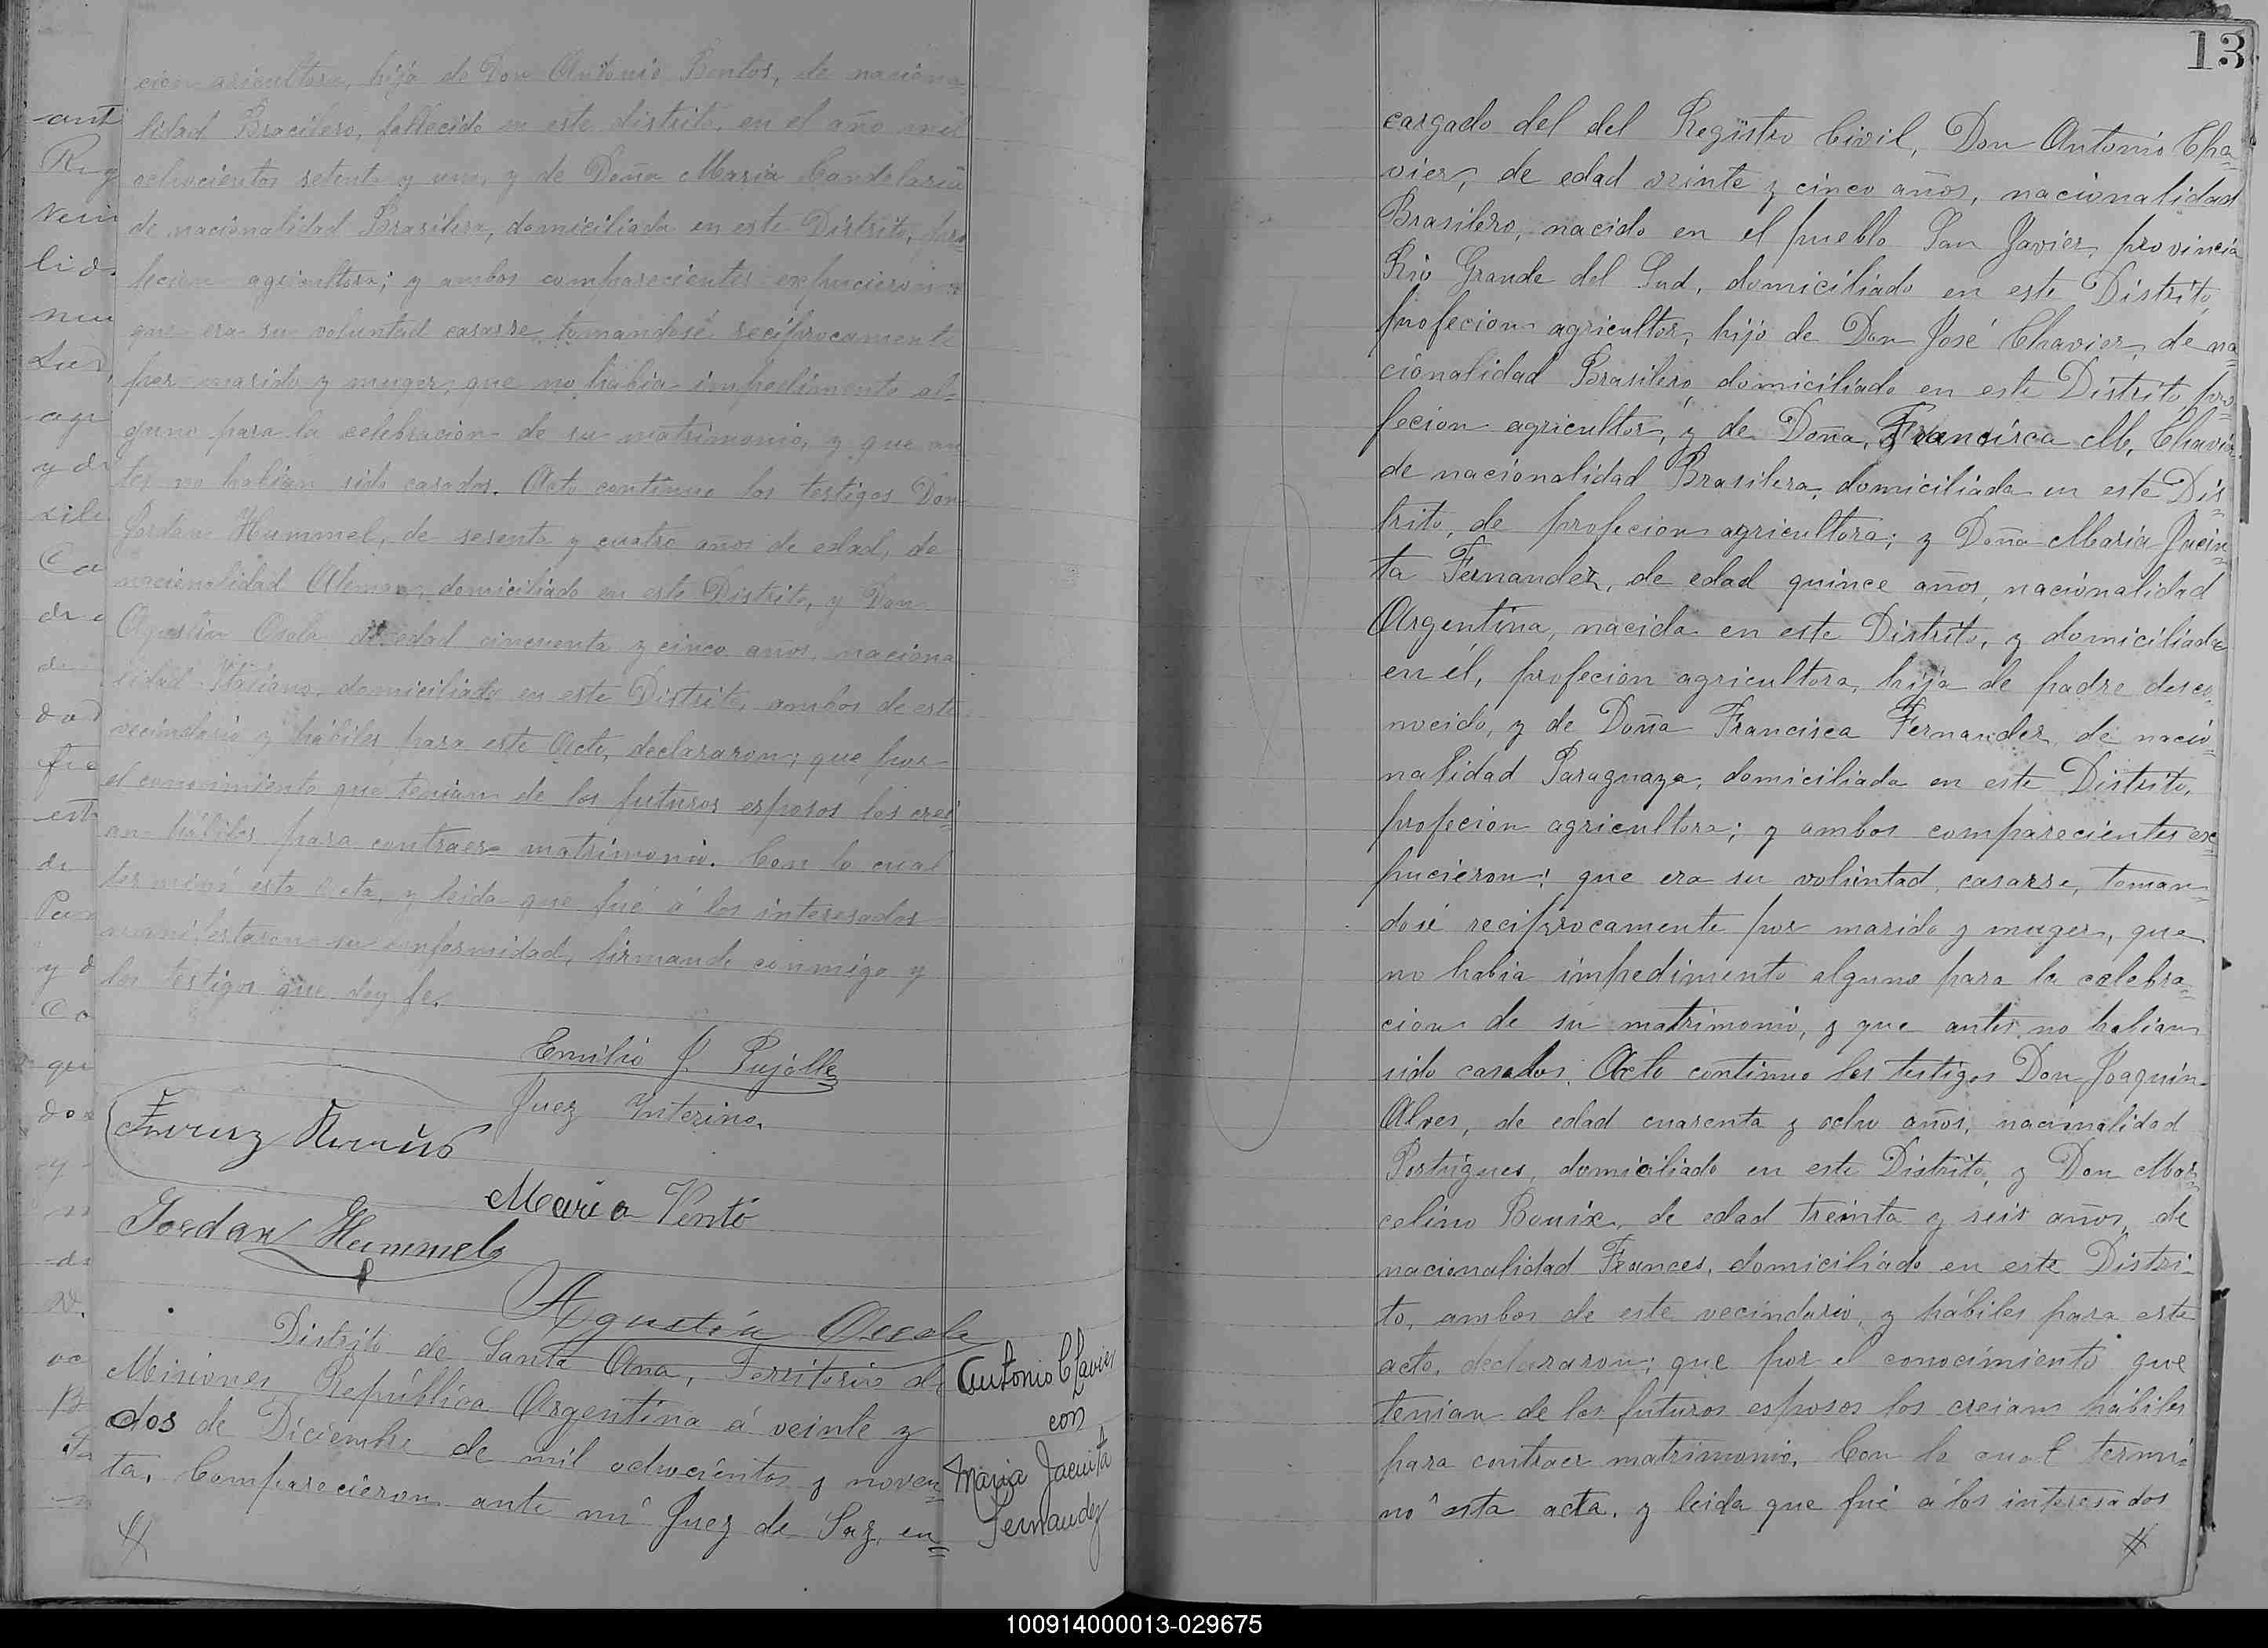 cion agricultora, hija de Don Antonio Bentos, de naciona=
lidad Bracilero, fallecido en este distrito, en el año mil
ochocientos setenta y uno, y de Doña Maria Candelaria
de nacionalidad Brasilera, domiciliada en este Distrito, pro
fecion agricultora; y ambos comparecientes expucieron:
que era su voluntad casarse, tomandosé reciprocamente
por marido y muger, que no habia impedimento al=
guno para la celebracion de su matrimonio, y que an
tes no habian sido casados. Acto continuo los testigos Don
Jordan Hummel, de sesenta y cuatro años de edad, de
nacionalidad Aleman, domiciliado en este Distrito, y Don
Agustin Osola de edad cincuenta y cinco años, naciona
lidad Italiano, domiciliado en este Distrito, ambos de este
vecindario y hábiles para este Acto, declararon; que por
el conocimiento que tenian de los futuros esposos los crei
an hábiles para contraer matrimonio. Con lo cual
terminó esta Acta, y leida que fué á los interesados
manifestaron su conformidad, firmando conmigo y
los testigos que doy fe.
Emilio J. Pujolle
Juez Interino.
Maria Vento
Jordan Hummel
Agustin
Distrito de Santa Ana, Territorio de
Misiones, República Argentina á veinte y
dos de Diciembre de mil ochocientos y noven=
ta. Comparecieron ante mi Juez de Paz, en=
Antonio Chavier
con
Maria Jacinta
Fernandez
ant
Reg
vein
lid
nu
Sud,
agr
y d
sile
Ca
de
dad
est
de
y d
Co
que
don
y
de
13
cargado del del Registro Civil, Don Antonio Cha=
vier, de edad veinte y cinco años, nacionalidad
Brasilero, nacido en el pueblo San Javier, provincia
Rio Grande del Sud, domiciliado en este Distrito,
profecion agricultor, hijo de Don José Chavier, de na
cionalidad Brasilero, domiciliado en este Distrito, pro=
fecion agricultor, y de Doña, Francisca M. Chavier
de nacionalidad Brasilera, domiciliada en este Dis=
trito, de profecion agricultora; y Doña Maria Jacin=
ta Fernandez, de edad quince años, nacionalidad
Argentina, nacida en este Distrito, y domiciliada
en él, profecion agricultora, hija de padre desco=
nocido, y de Doña Francisca Fernandez, de nacio=
nalidad Paraguaya, domiciliada en este Distrito,
profecion agricultora; y ambos comparecientes ex=
pucieron: que era su voluntad, casarse, toman=
dosé reciprocamente por marido y muger, que
no habia impedimento alguno para la celebra=
cion de su matrimonio, y que antes no habian
sido casados. Acto continuo los testigos Don Joaquin
Alves, de edad cuarenta y ocho años, nacionalidad
Portugues, domiciliado en este Distrito, y Don Mar=
celino Bouix, de edad treinta y seis años, de
nacionalidad Frances, domiciliado en este Distri=
to, ambos de este vecindario, y hábiles para este
acto, declararon; que por el conocimiento que
tenian de los futuros esposos los creian hábiles
para contraer matrimonio. Con lo cual termi
nó esta acta, y leida que fué á los interesados
100914000013-029675